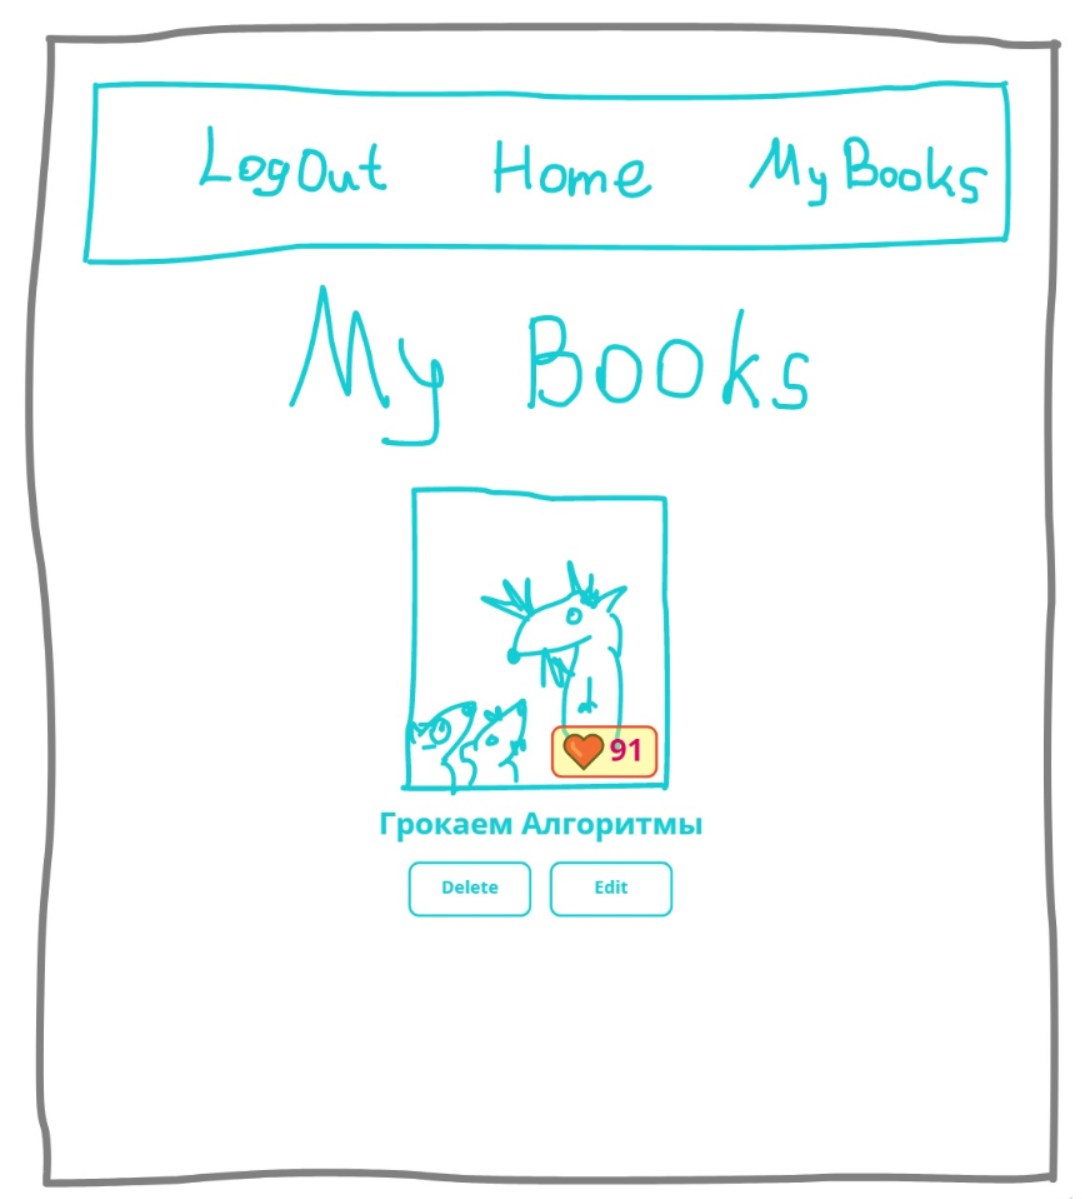 LogOut Home My Books
My Books
91
Грокаем Алгоритмы
Delete Edit